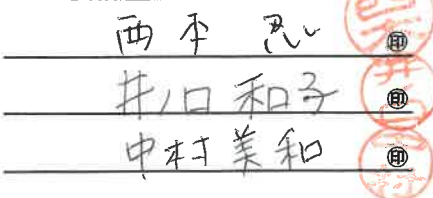 西本 忍 ㊞
井ノ口 和子 ㊞
中村 美和 ㊞